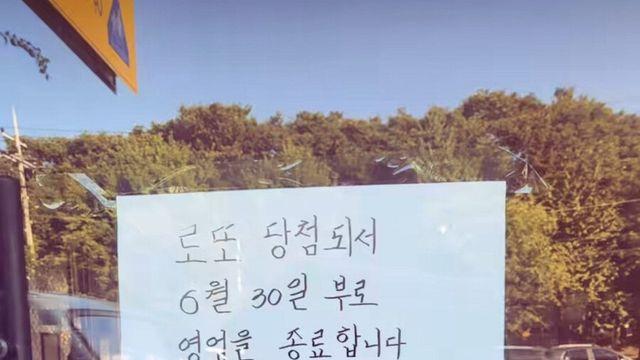 로또 당첨되서
6월 30일 부로
영업을 종료합니다